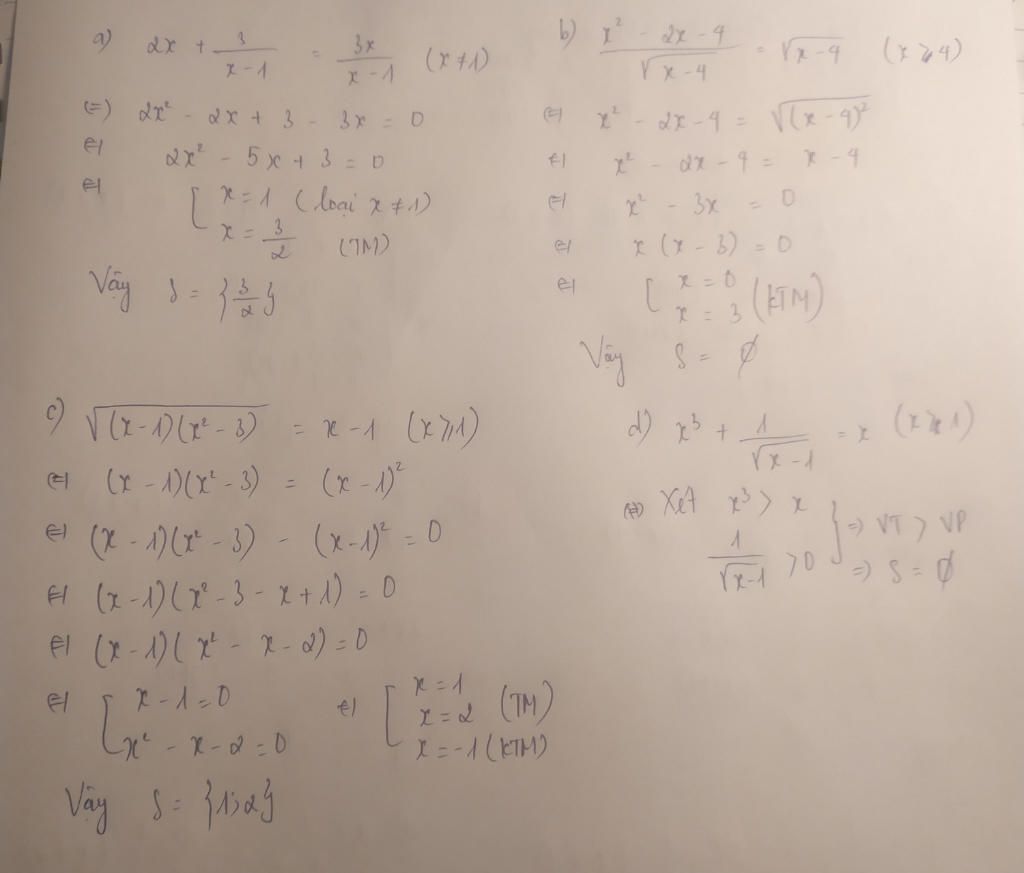 a) 2x + 3/(x-1) = 3x/(x-1) (x ≠ 1)
(=) 2x² - 2x + 3 - 3x = 0
(=) 2x² - 5x + 3 = 0
(=) [ x = 1 (loại x ≠ 1)
x = 3/2 (TM)
Vậy S = {3/2}
b) (x² - 2x - 4)/√(x-4) = √(x-4) (x ≥ 4)
(=) x² - 2x - 4 = √((x-4)²)
(=) x² - 2x - 4 = x - 4
(=) x² - 3x = 0
(=) x (x - 3) = 0
(=) [ x = 0
x = 3 (KTM)
Vậy S = ∅
c) √((x-1)(x²-3)) = x - 1 (x ≥ 1)
(=) (x-1)(x²-3) = (x-1)²
(=) (x-1)(x²-3) - (x-1)² = 0
(=) (x-1)(x²-3-x+1) = 0
(=) (x-1)(x²-x-2) = 0
(=) [ x-1=0 (=) [ x=1
x²-x-2=0 x=2 (TM)
x=-1 (KTM)
Vậy S = {1;2}
d) x³ + 1/√(x-1) = x (x > 1)
(=) Xét x³ > x
1/√(x-1) > 0 } => VT > VP
=> S = ∅